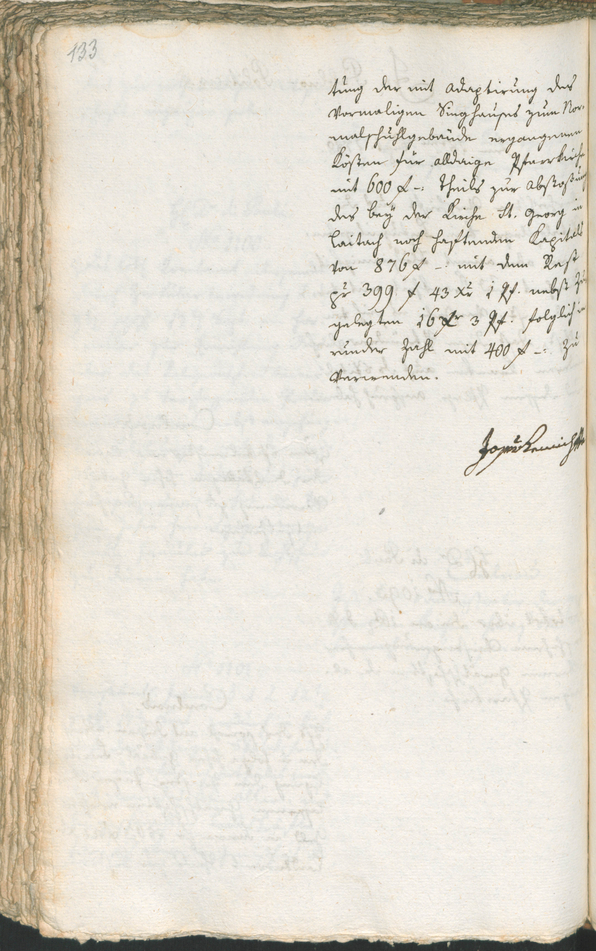 133
tung der mit Adaptirung des
vormaligen Singhauses zum Nor-
malschuhlgebäude ergangenen
Kösten für alldaige Pfarrkirche
mit 600 f -: theils zur Abstoßung
des bey der Kirche St. Georg in
Laitach noch haftenden Kapitals
von 876 f -: mit dem Rest
pr 399 f 43 xr 1 Pf. nebst zu
gelegten 16 xr 3 Pf. folglich in
runder Zahl mit 400 f -: zu
verwenden.